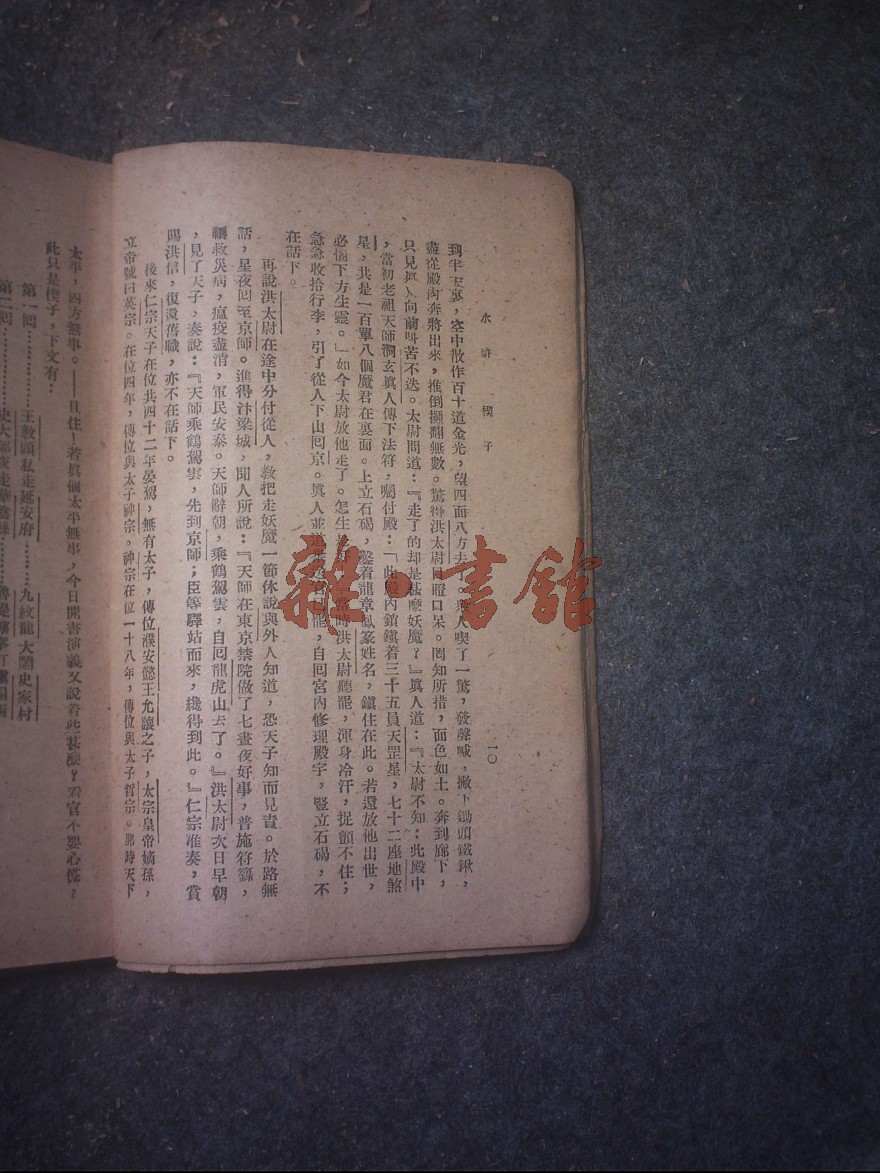 水滸　楔子
一〇
到半天裏，空中散作百十道金光，望四面八方去了。衆人喫了一驚，發聲喊，撇下鋤頭鐵鍬，
盡從殿內奔將出來，推倒攧翻無數。驚得洪太尉目瞪口呆。罔知所措，面色如土。奔到廊下，
只見眞人向前叫苦不迭。太尉問道：『走了的却是甚麽妖魔？』眞人道：『太尉不知：此殿中
，當初老祖天師洞玄眞人傳下法符，囑付殿：「此殿內鎮鎖着三十六員天罡星，七十二座地煞
星，共是一百單八個魔君在裏面。上立石碣，鑿着龍章鳳篆姓名，鎮住在此。若還放他出世，
必惱下方生靈。」如今太尉放他走了。怎生是好！當時洪太尉聽罷，渾身冷汗，捉顫不住；
急急收拾行李，引了從人下山囘京。眞人並道衆送官已罷，自囘宮內修理殿宇，豎立石碣，不
在話下。
再說洪太尉在途中分付從人，敎把走妖魔一節休說與外人知道，恐天子知而見責。於路無
話，星夜囘至京師。進得汴梁城，聞人所說：『天師在東京禁院做了七晝夜好事，普施符籙，
禳救災病，瘟疫盡消，軍民安泰。天師辭朝，乘鶴駕雲，自囘龍虎山去了。』洪太尉次日早朝
，見了天子，奏說：『天師乘鶴駕雲，先到京師；臣等驛站而來，纔得到此。』仁宗准奏，賞
賜洪信，復還舊職，亦不在話下。
後來仁宗天子在位共四十二年晏駕，無有太子，傳位濮安懿王允讓之子，太宗皇帝嫡孫，
立帝號曰英宗。在位四年，傳位與太子神宗。神宗在位一十八年，傳位與太子哲宗。那時天下
太平，四方無事。——且住！若眞個太平無事，今日開書演義又說着些甚麽？看官不要心慌，
此只是楔子，下文有：
第一囘…………王敎頭私走延安府　九紋龍大鬧史家村
第二囘…………史大郎夜走華陰縣
雜·書館